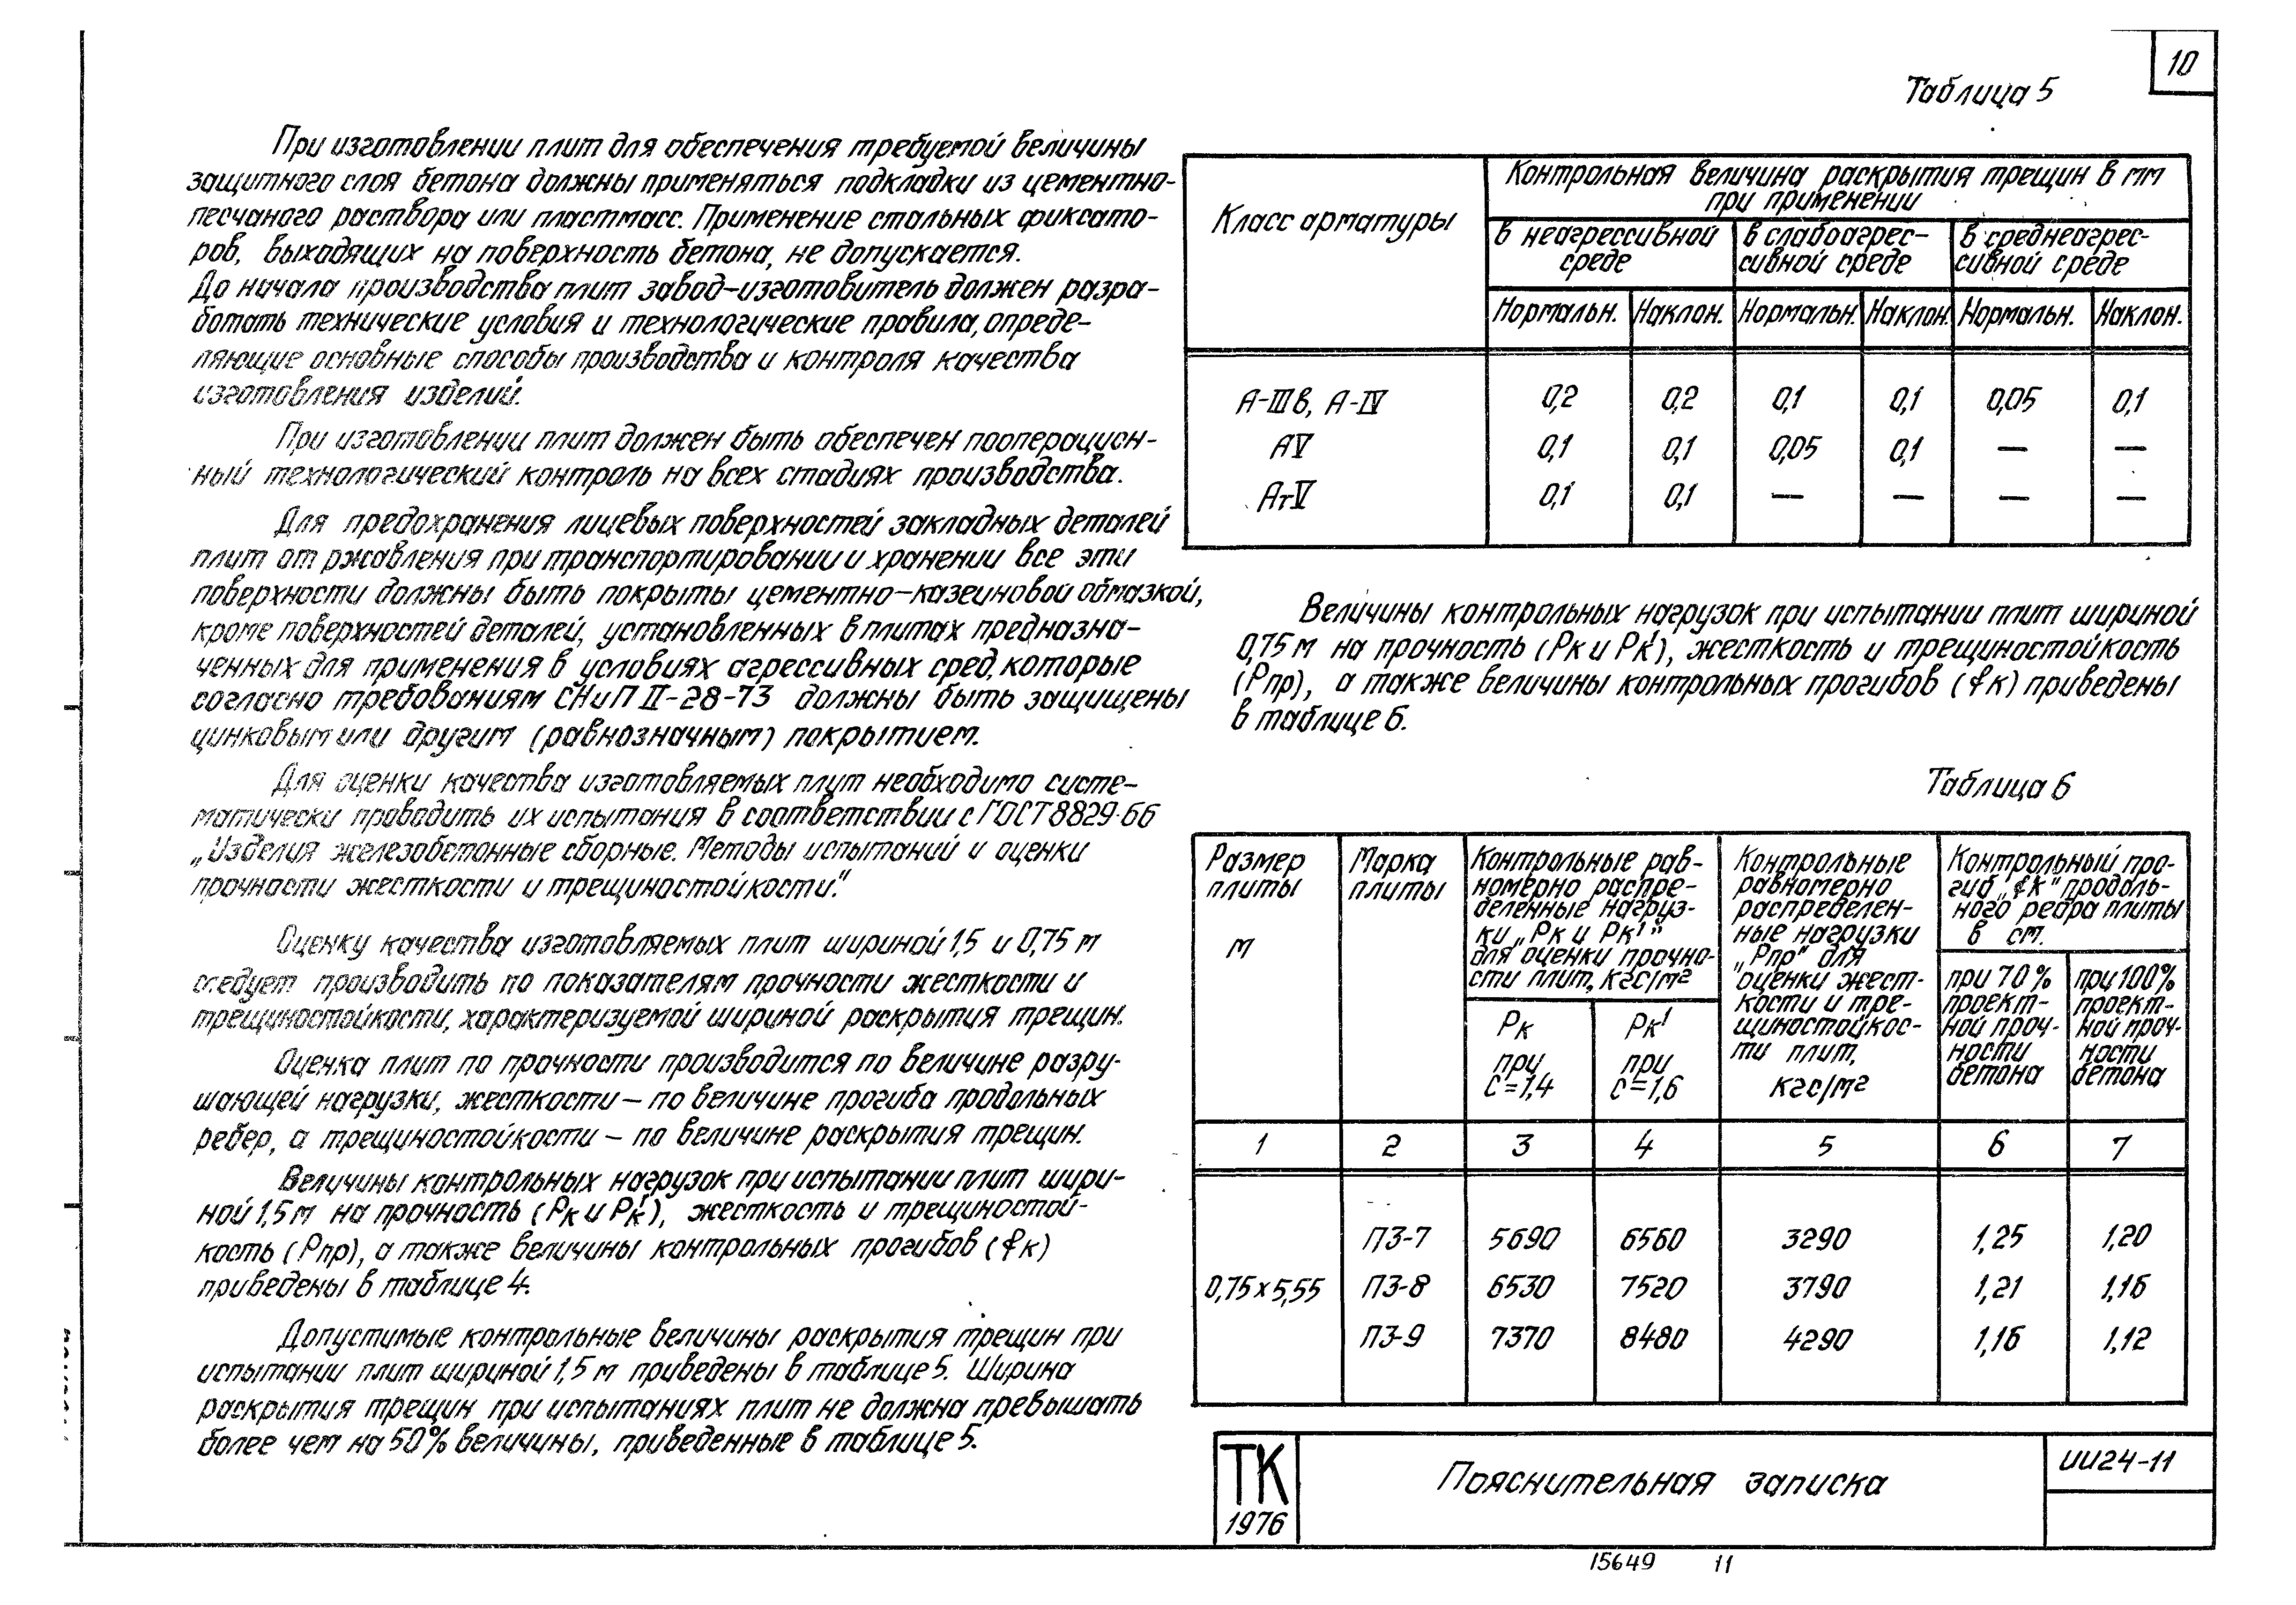 10
При изготовлении плит для обеспечения требуемой величины
защитного слоя бетона должны применяться подкладки из цементно-
песчаного раствора или пластмасс. Применение стальных фиксато-
ров, выходящих на поверхность бетона, не допускается.
До начала производства плит завод-изготовитель должен разра-
ботать технические условия и технологические правила, опреде-
ляющие основные способы производства и контроля качества
изготовления изделий.
При изготовлении плит должен быть обеспечен пооперацион-
ный технологический контроль на всех стадиях производства.
Для предохранения лицевых поверхностей закладных деталей
плит от ржавления при транспортировании и хранении все эти
поверхности должны быть покрыты цементно-казеиновой обмазкой,
кроме поверхностей деталей, установленных в плитах предназна-
ченных для применения в условиях агрессивных сред, которые
согласно требованиям СНиП II-28-73 должны быть защищены
цинковым или другим (равнозначным) покрытием.
Для оценки качества изготовляемых плит необходимо систе-
матически проводить их испытания в соответствии с ГОСТ 8829-66
„Изделия железобетонные сборные. Методы испытаний и оценки
прочности жесткости и трещиностойкости."
Оценку качества изготовляемых плит шириной 1,5 и 0,75 м
следует производить по показателям прочности жесткости и
трещиностойкости, характеризуемой шириной раскрытия трещин.
Оценка плит по прочности производится по величине разру-
шающей нагрузки, жесткости – по величине прогиба продольных
ребер, а трещиностойкости – по величине раскрытия трещин.
Величины контрольных нагрузок при испытании плит шири-
ной 1,5 м на прочность (Рк и Рк'), жесткость и трещиностой-
кость (Рпр), а также величины контрольных прогибов (fк)
приведены в таблице 4.
Допустимые контрольные величины раскрытия трещин при
испытании плит шириной 1,5 м приведены в таблице 5. Ширина
раскрытия трещин при испытаниях плит не должна превышать
более чем на 50% величины, приведенные в таблице 5.
Таблица 5
Класс арматуры
Контрольная величина раскрытия трещин в мм
при применении
в неагрессивной в слабоагрес- в среднеагрес-
среде сивной среде сивной среде
Нормальн. Наклон. Нормальн. Наклон. Нормальн. Наклон.
А-IIIв, А-IV 0,2 0,2 0,1 0,1 0,05 0,1
АV 0,1 0,1 0,05 0,1 — —
АтV 0,1 0,1 — — — —
Величины контрольных нагрузок при испытании плит шириной
0,75 м на прочность (Рк и Рк'), жесткость и трещиностойкость
(Рпр), а также величины контрольных прогибов (fк) приведены
в таблице 6.
Таблица 6
Размер
плиты
м
Марка
плиты
Контрольные рав-
номерно распре-
деленные нагруз-
ки „Рк и Рк'"
для оценки прочно-
сти плит, кгс/м²
Рк
при
С=1,4
Рк'
при
С=1,6
Контрольные
равномерно
распределен-
ные нагрузки
„Рпр" для
оценки жест-
кости и тре-
щиностойкос-
ти плит,
кгс/м²
Контрольный про-
гиб „fк" продоль-
ного ребра плиты
в см.
при 70%
проект-
ной проч-
ности
бетона
при 100%
проект-
ной проч-
ности
бетона
1 2 3 4 5 6 7
П3-7 5690 6560 3290 1,25 1,20
0,75х5,55 П3-8 6530 7520 3790 1,21 1,16
П3-9 7370 8480 4290 1,16 1,12
ТК
1976
Пояснительная записка
ИИ24-11
15649 11